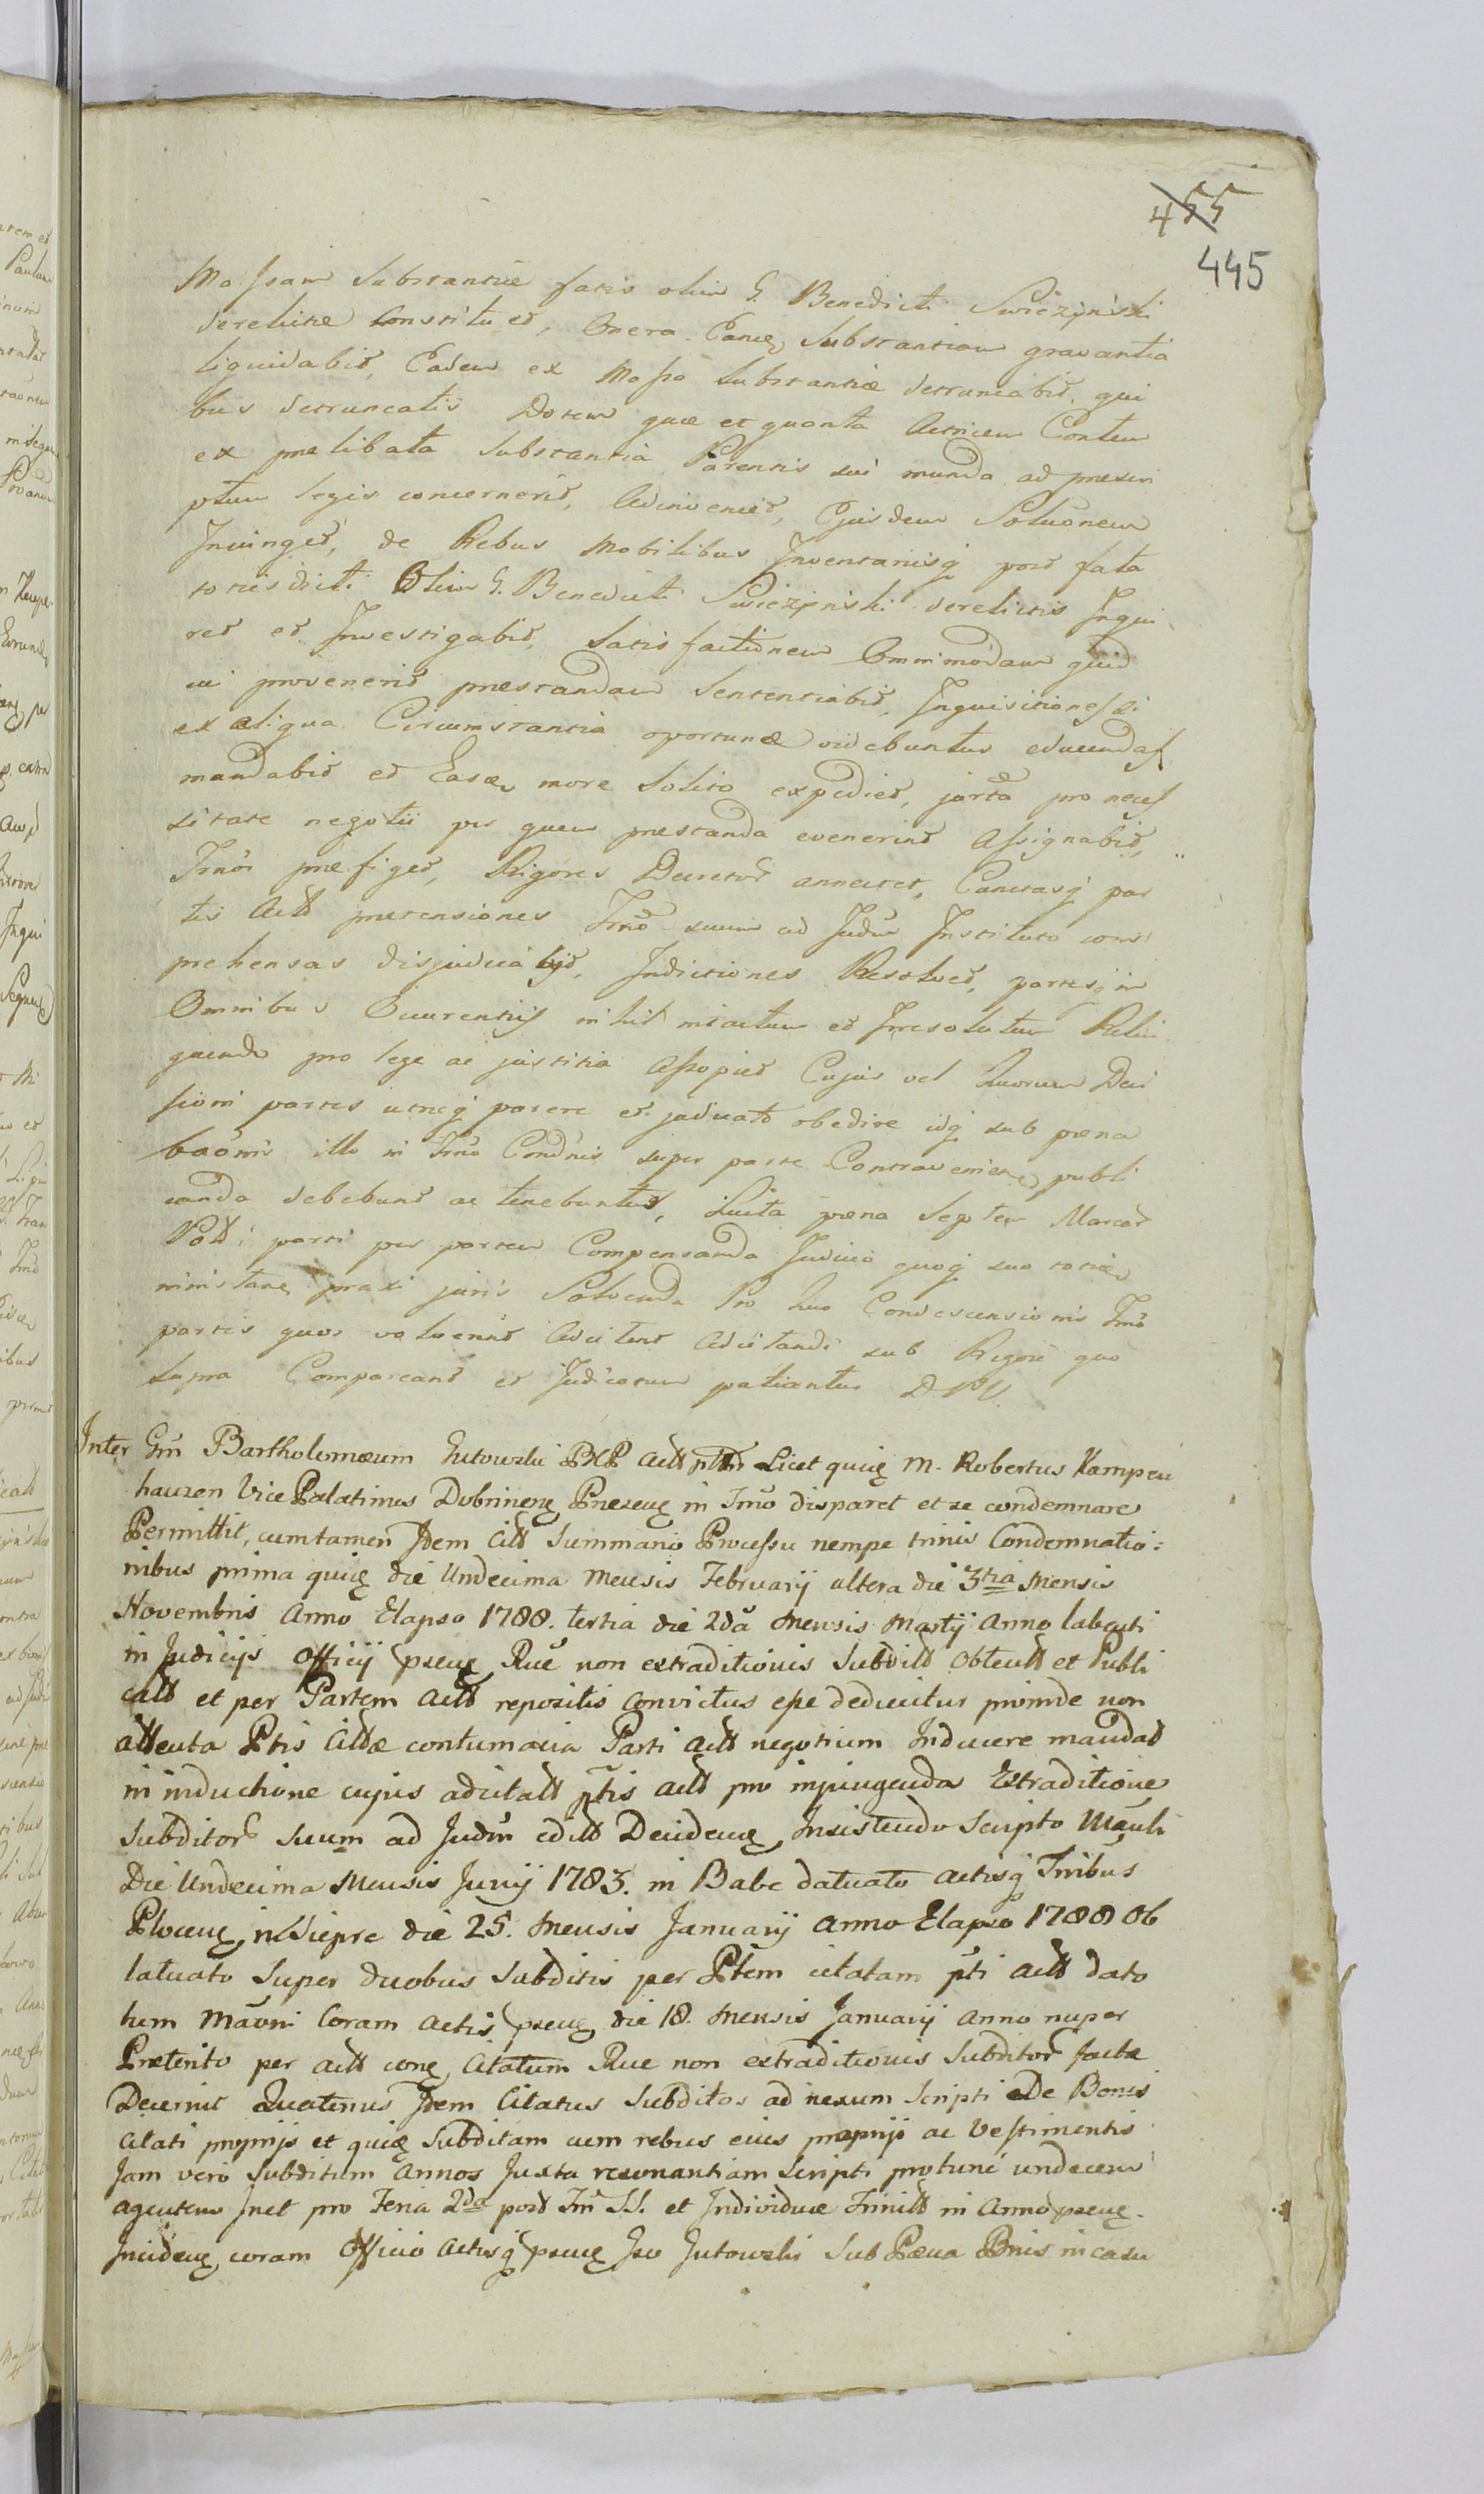 455
445
Massam Substantiæ fatis olim G. Benedicti Swieżyński
derelictæ Constituet, Onera Eanq Substantiam gravantia
liquidabit, Eadem ex Massa Substantiæ detruncabit, qui
bus detruncatis Dotem quæ et quanta Actricem Contem
ex prælibata Substantia Parentis sui munda ad prescri
ptum legis concernerit, Adinveniet, Ejusdem Solutionem
Injunget, de Rebus Mobilibus Inventarijsq post fata
toties dicti Olim G. Benedicti Swieżyński derelictis Inqui
ret et Investigabit, Satisfactionem Omnimodam quid
cui provenerit præstandam Sententiabit, Inquisitiones si
ex aliqua Circumstantia oportunæ videbuntur educendas
mandabit et Easq more Solito expediet, jurta pro neces
sitate negotii per quem præstanda evenerint Assignabit,
Trnos præfiget, Rigores Decretor annectet, Cunctasq par
tis Actt prætensiones Trno suum ad Judm Instituto com
prehensas disjudicabit, Indictiones Resolvet, partesq in
Omnibus Occurentijs nihil intactum et Irresolutum Relin
quendo pro lege ac justitia Assopiet Cujus vel Quorum Deci
sioni partes utrèq parere et judicato obedire idq sub pæna
baōnis illo in Trno Condnis super parte Contravenien publi
canda debebunt ac tenebuntur, Luita pæna Septem Marcar
Poll: parti per partem Compensanda Judicio quoq suo toties
ministane praxi juris Solvenda Pro quo Condescensionis Trno
partes quos voluerint Adcitent Adcitandi sub Rigore quo
supra Compareant et Judicatum patiantur D P V.
Inter Gm Bartholomæum Gutowski BKP Actt Licet quiq M. Robertus Kampen
hauzen Vice Palatinus Dobrinenq Præseuq in Trno disparet et se condemnare
Permittit, cum tamen Idem Citt Summario Processu nempe trinis Condemnatio:
nibus prima quiq die Undecima Mensis Februarij altera die 3tia Mensis
Novembris Anno Elapso 1788. tertia die 2da Mensis Martij Anno labenti
in Judicijs Officij pseuq Rue non extraditionis Subditt obtentt et Publi
catt et per Partem Actt repositis convictus esse deducitur proinde non
attenta Ptis Cittæ contumacia Parti Actt negotium Inducere mandat
in inductione cujus adcitatt ptis Actt pro injungenda Extraditione
Subditor Suum ad Judm editt Decidenq Insistendo Scripto Manli
Die Undecima Mensis Junij 1783. in Babe datuato Actisq Tmibus
Plocenq in Siepre die 25. Mensis Januarij Anno Elapso 1788 Ob
latuato Super duobus Subditis per Ptem citatam pti Actt dato
tum Maōni Coram Actis pseuq die 18. Mensis Januarij Anno nuper
Præterito per Actt conq Citatum Rue non extraditionis Subditor factæ
Decernit Quatenus Idem Citatus Subditos ad nexum Scripti De Bonis
Citati proprijs et quiq Subditam cum rebus eius proprijs ac Vestimentis
Jam vero Subditum Annos Juxta resonantiam Scripti protunc undecem
agentem Inet pro Feria 2da post Fm SS. et Individuæ Trinitt in Anno pseuq.
Incidenq coram Officio Actisq pseuq Jco Jutowski Sub Pæna Bnis in casu